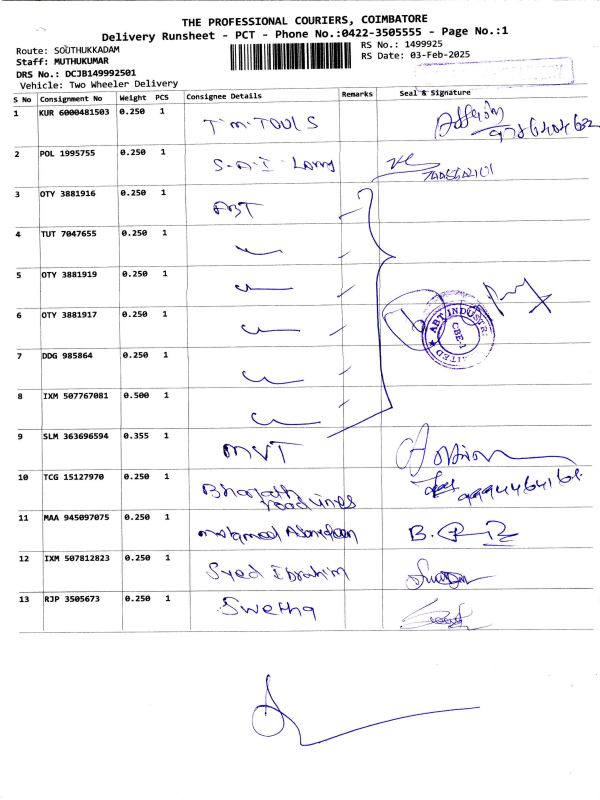 THE PROFESSIONAL COURIERS, COIMBATORE
Delivery Runsheet - PCT - Phone No.:0422-3505555 - Page No.:1
Route: SOUTHUKKADAM
RS No.: 1499925
Staff: MUTHUKUMAR
RS Date: 03-Feb-2025
DRS No.: DCJB149992501
Vehicle: Two Wheeler Delivery
S No Consignment No Weight PCS Consignee Details Remarks Seal & Signature
1 KUR 6000481503 0.250 1 T.M. TOOLS
2 POL 1995755 0.250 1 S.A.I.
3 OTY 3881916 0.250 1 ABT
4 TUT 7047655 0.250 1
5 OTY 3881919 0.250 1
6 OTY 3881917 0.250 1
ABT INDUSTR
CBE-1
7 DDG 985864 0.250 1
8 IXM 507767081 0.500 1
9 SLM 363696594 0.355 1 MVT
10 TCG 15127970 0.250 1 Bharath
roadlines
11 MAA 945097075 0.250 1
12 IXM 507812823 0.250 1 Syed Ibrahim
13 RJP 3505673 0.250 1 Swetha